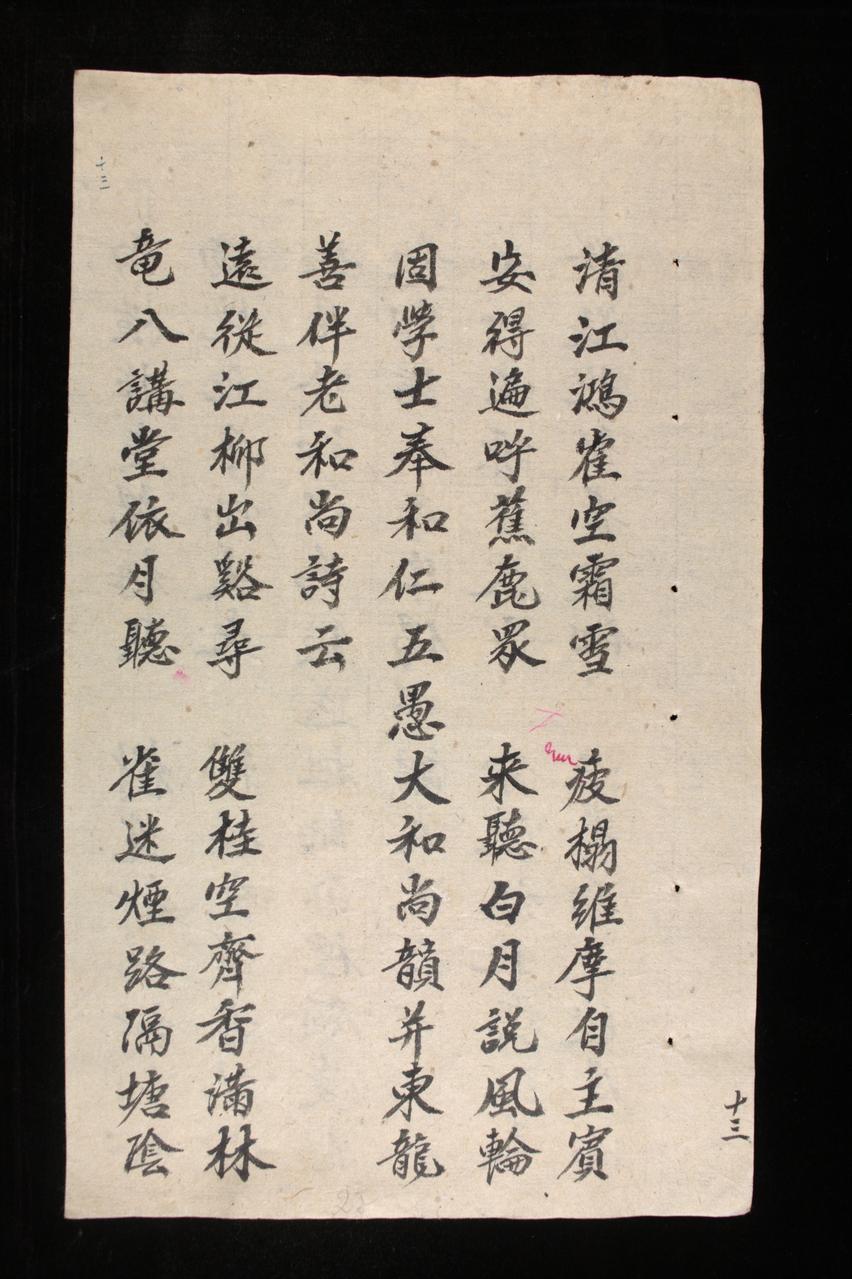 清江鴻隺空霜雪　疲榻維摩自主賓
安得遍呼蕉鹿眾　来聽白月説風輪
固學士奉和仁五愚大和尚韻并東龍
善伴老和尚詩云
遠從江柳出谿尋　雙桂空齊香滿林
竜八講堂依月聽　雀迷煙路隔塘陰
十三
十三